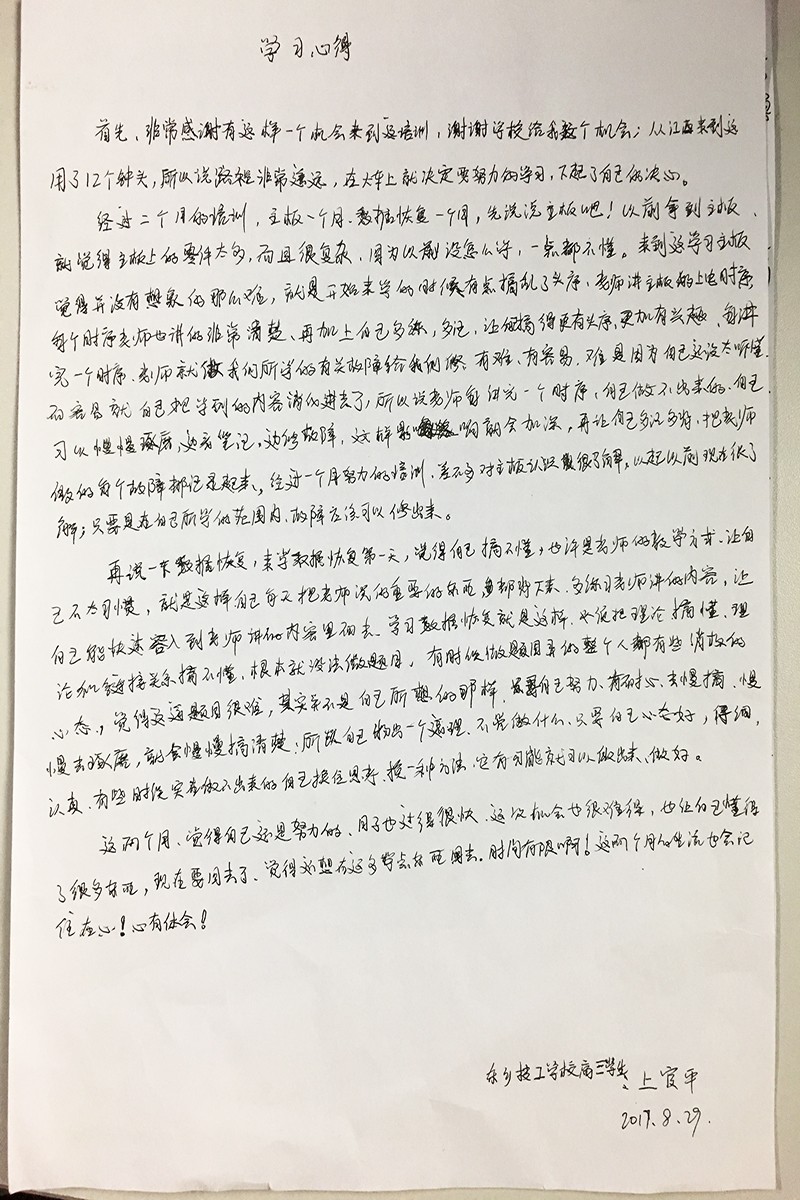 学习心得
首先、非常感谢有这样一个机会来到这培训，谢谢学校给我这个机会；从江西来到这
用了12个钟头，所以说路程非常遥远，在火车上就决定要努力的学习，下起了自己的决心。
经过二个月的培训，主板一个月、数据恢复一个月，先说说主板吧！以前拿到主板、
就觉得主板上的零件太多，而且很复杂、因为以前没怎么学，一点都不懂。来到这学习主板
觉得并没有想象的那么难，就是开始来学的时候有点搞乱了头序、老师讲主板的上电时序
每个时序老师也讲的非常清楚、再加上自己多练，多记，让 搞得更有头序、更加有兴趣、每讲
完一个时序、老师就做我们所学的有关故障给我们修、有难、有容易、难是因为自己还没太听懂
而容易就自己把学到的内容消化进去了，所以说老师每讲完一个时序、自己做不出来的、自己
可以慢慢琢磨，边看笔记，边修故障，这样 响就会加深，再让自己多记多学、把老师
做的每个故障都记 起来、经过一个月努力的培训、差不多对主板认识 很了解，比起以前现在很了
解；只要是在自己所学的范围内、故障应该可以修出来。
再说一下数据恢复，来学数据恢复第一天，觉得自己搞不懂，也许是老师的教学方式、让自
己不太习惯，就是这样自己每天把老师说的重要的东西 都抄下来、多练习老师讲的内容，让
自己能快速容入到老师讲的内容里面去、学习数据恢复就是这样、必须把理论搞懂、理
论和 接关系搞不懂、根本就没法做题目， 有时候做题目弄的整个人都有些消极的
心态，觉得这道题目很难，其实并不是自己所想的那样、只要自己努力、有耐心、去慢搞、慢
慢去琢磨，就会慢慢搞清楚；所以自己 出一个道理、不管做什么、只要自己心态好，仔细，
认真、有些时候实在做不出来的自己换位思考、换一种方法、它有可能就可以做出来、做好。
这两个月、觉得自己还是努力的、日子也过得很快、这次机会也很难得，也让自己懂得
了很多东西，现在要回去了、觉得还想在这多学点东西回去、时间有限啊！这两个月的生活也会记
住在心！心有体会！
东乡技工学校 学生：上官平
2017.8.29.